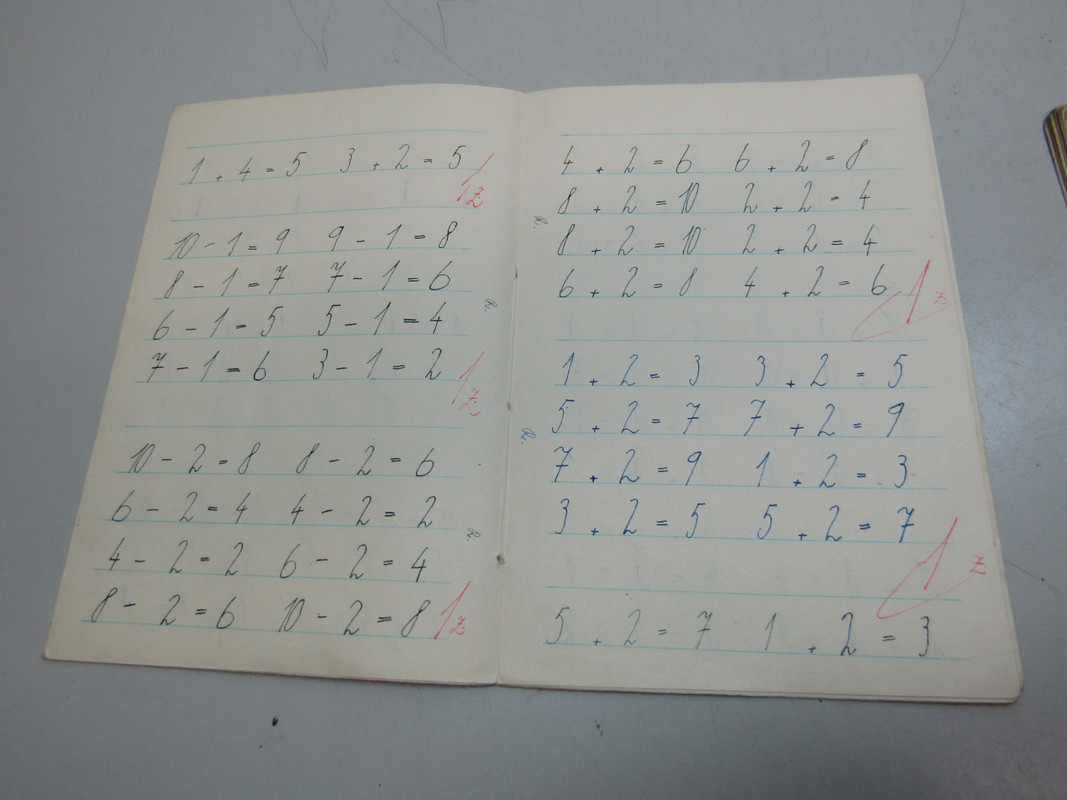 1 + 4 = 5 3 + 2 = 5
1
Z
10 - 1 = 9 9 - 1 = 8
8 - 1 = 7 7 - 1 = 6
R.
6 - 1 = 5 5 - 1 = 4
7 - 1 = 6 3 - 1 = 2
1
Z
10 - 2 = 8 8 - 2 = 6
6 - 2 = 4 4 - 2 = 2
R.
4 - 2 = 2 6 - 2 = 4
8 - 2 = 6 10 - 2 = 8
1
Z
4 + 2 = 6 6 + 2 = 8
8 + 2 = 10 2 + 2 = 4
R.
8 + 2 = 10 2 + 2 = 4
6 + 2 = 8 4 + 2 = 6
1
Z
1 + 2 = 3 3 + 2 = 5
5 + 2 = 7 7 + 2 = 9
R.
7 + 2 = 9 1 + 2 = 3
3 + 2 = 5 5 + 2 = 7
1
Z
5 + 2 = 7 1 + 2 = 3